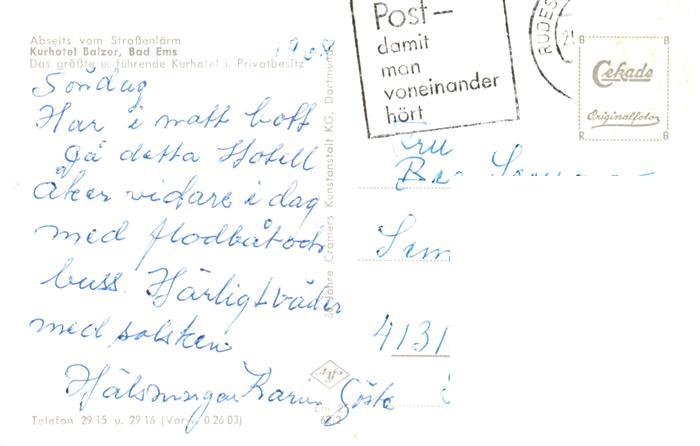 Abseits vom Straßenlärm
Kurhotel Balzer, Bad Ems
Das größte u. führende Kurhotel i. Privatbesitz
Söndag
Har i natt bott
på detta Hotell
åker vidare i dag
med flodbåt och
buss. Härligt väder
med solsken
Hälsningar Karin Gösta
Telefon 29 15 u. 29 16 (Vorw. 0 26 03)
60 Jahre Cramers Kunstanstalt KG, Dortmund
Em
Post—
damit
man
voneinander
hört
RÜDES
Cekade
Originalfoto
Fru
4131